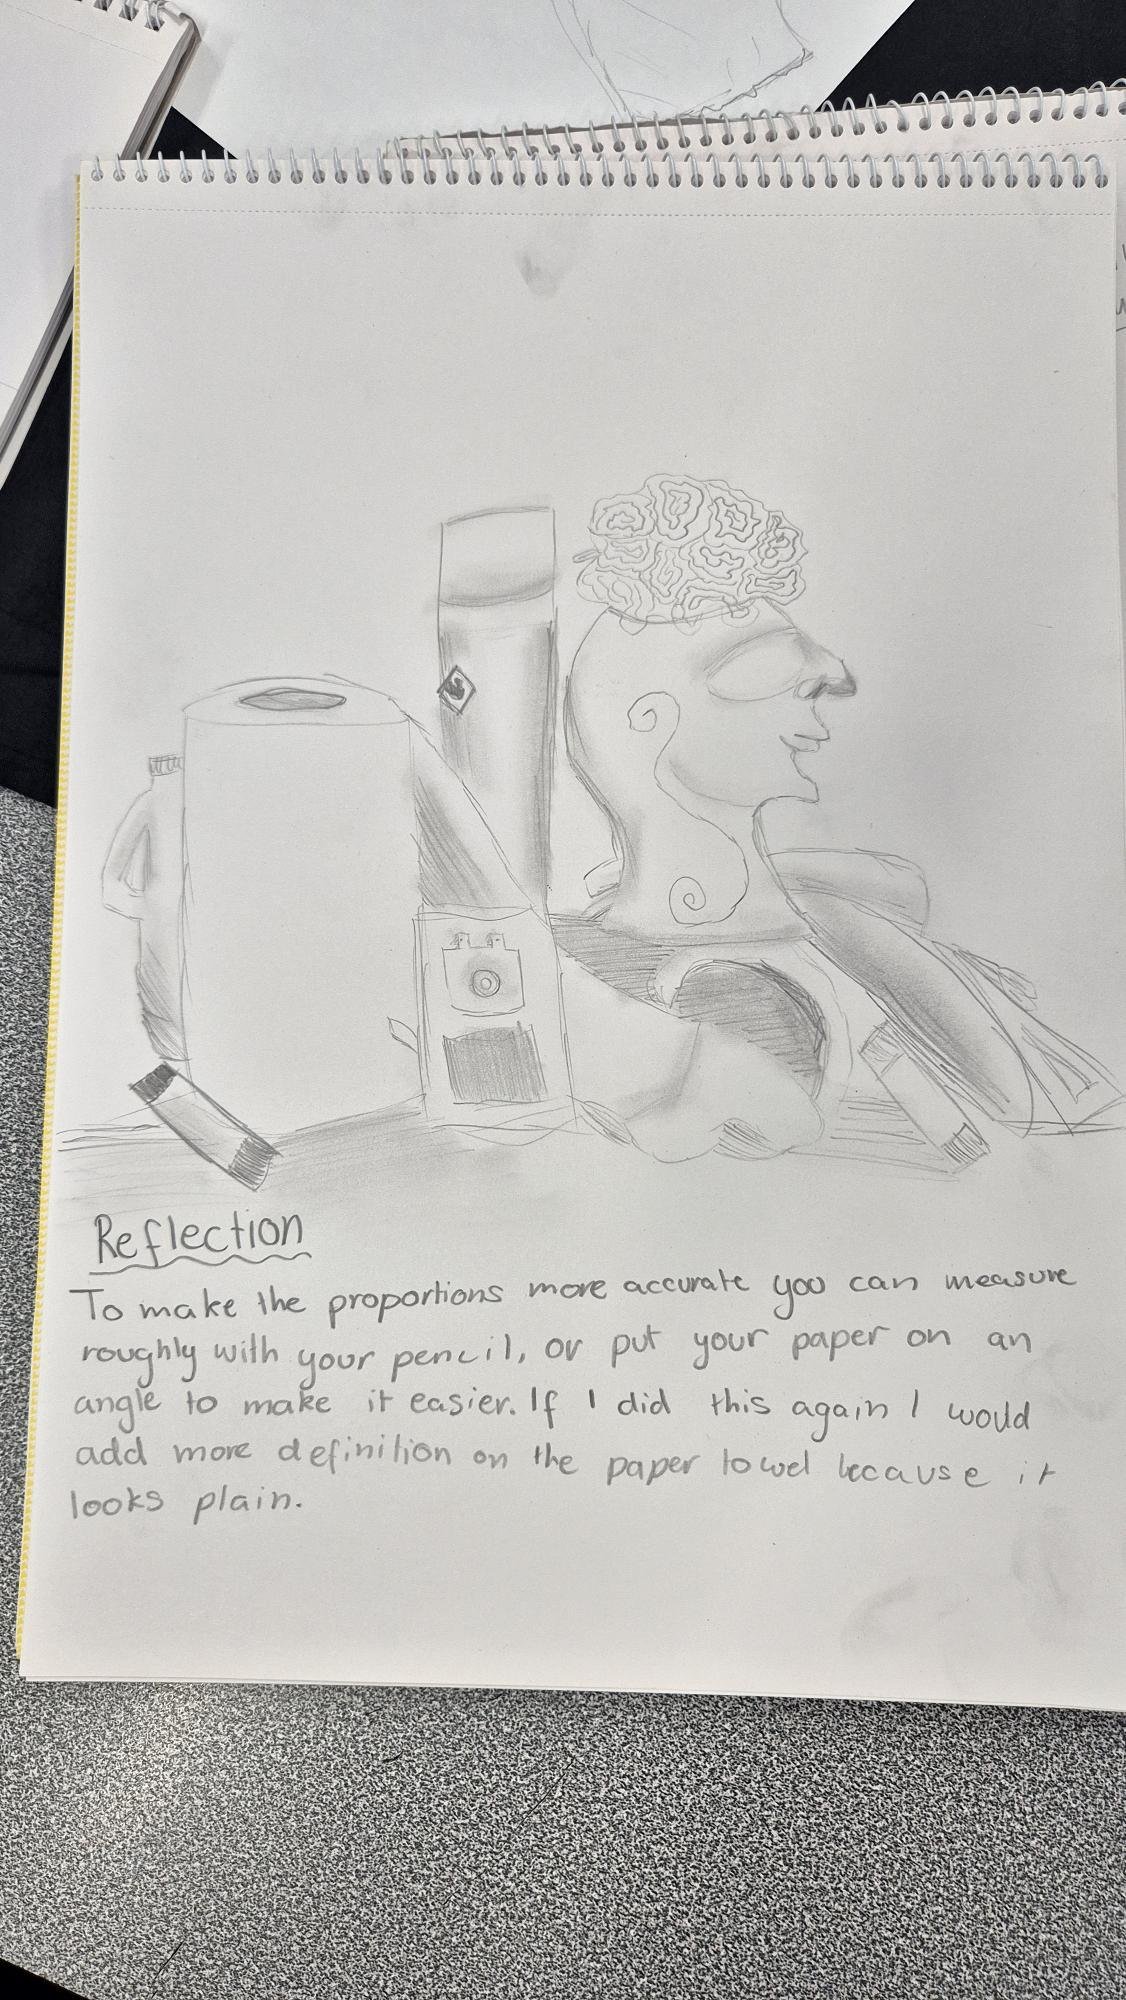 Reflection
To make the proportions more accurate you can measure
roughly with your pencil, or put your paper on an
angle to make it easier. If I did this again I would
add more definition on the paper towel because it
looks plain.